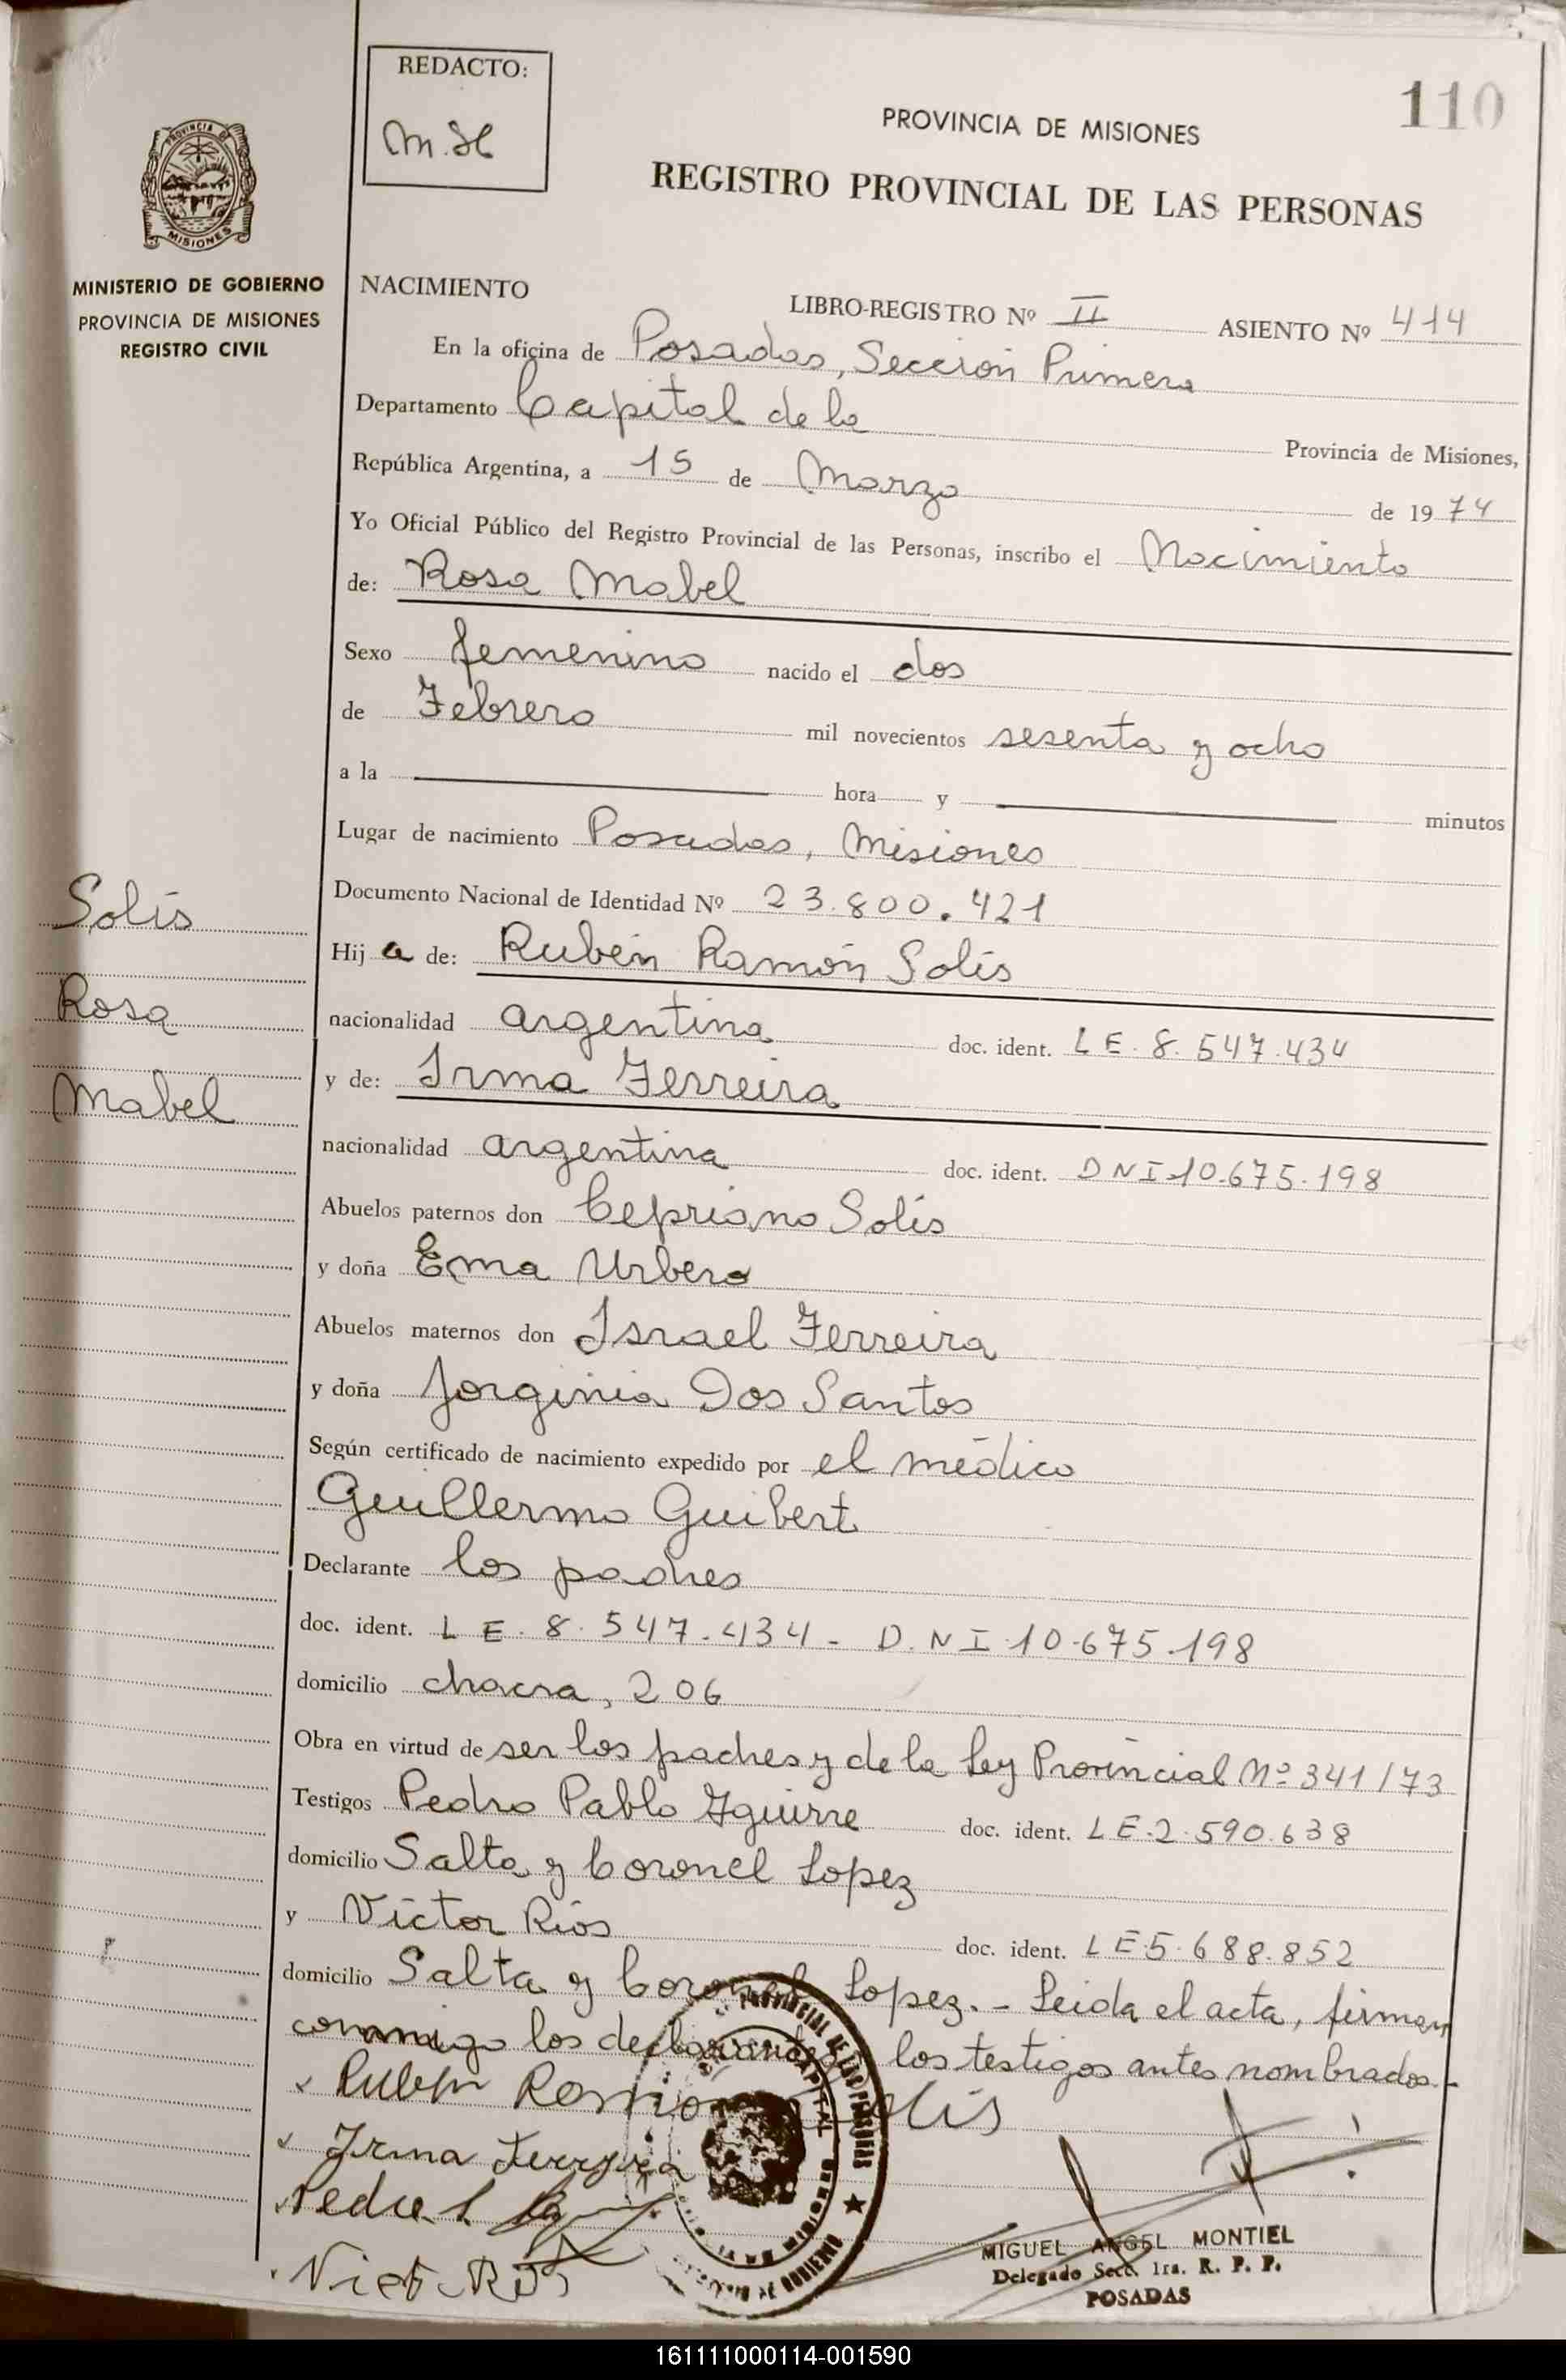 REDACTO:
M.H
110
PROVINCIA DE MISIONES
REGISTRO PROVINCIAL DE LAS PERSONAS
PROVINCIA DE
MISIONES
MINISTERIO DE GOBIERNO
PROVINCIA DE MISIONES
REGISTRO CIVIL
NACIMIENTO
LIBRO-REGISTRO Nº II ASIENTO Nº 414
En la oficina de Posadas, Sección Primera
Departamento Capital de la Provincia de Misiones,
República Argentina, a 15 de Marzo de 1974
Yo Oficial Público del Registro Provincial de las Personas, inscribo el Nacimiento
de: Rosa Mabel
Sexo femenino nacido el dos
de Febrero mil novecientos sesenta y ocho
a la hora y minutos
Lugar de nacimiento Posadas, Misiones
Documento Nacional de Identidad Nº 23.800.421
Solís
Rosa
Mabel
Hij a de: Rubén Ramón Solís
nacionalidad argentina doc. ident. LE. 8.547.434
y de: Irma Ferreira
nacionalidad argentina doc. ident. DNI 10.675.198
Abuelos paternos don Cepriano Solís
y doña Ema Urbero
Abuelos maternos don Israel Ferreira
y doña Jorginia Dos Santos
Según certificado de nacimiento expedido por el médico
Guillermo Guibert
Declarante los padres
doc. ident. LE. 8.547.434 - D.N.I 10.675.198
domicilio chacra, 206
Obra en virtud de ser los padres y de la Ley Provincial Nº 341/73
Testigos Pedro Pablo Yguirre doc. ident. LE.2.590.638
domicilio Salta y Coronel Lopez
y Víctor Ríos doc. ident. LE 5.688.852
domicilio Salta y Coronel Lopez. - Leída el acta, firman
conmigo los declarantes los testigos antes nombrados.-
Rubén Ramón Solis
Irma Ferreira
Pedro
Vict Rios
PROVINCIAL DE LAS PERSONAS
CAPITAL
GOBIERNO
MIGUEL ANGEL MONTIEL
Delegado Secc. 1ra. R. P. P.
POSADAS
161111000114-001590